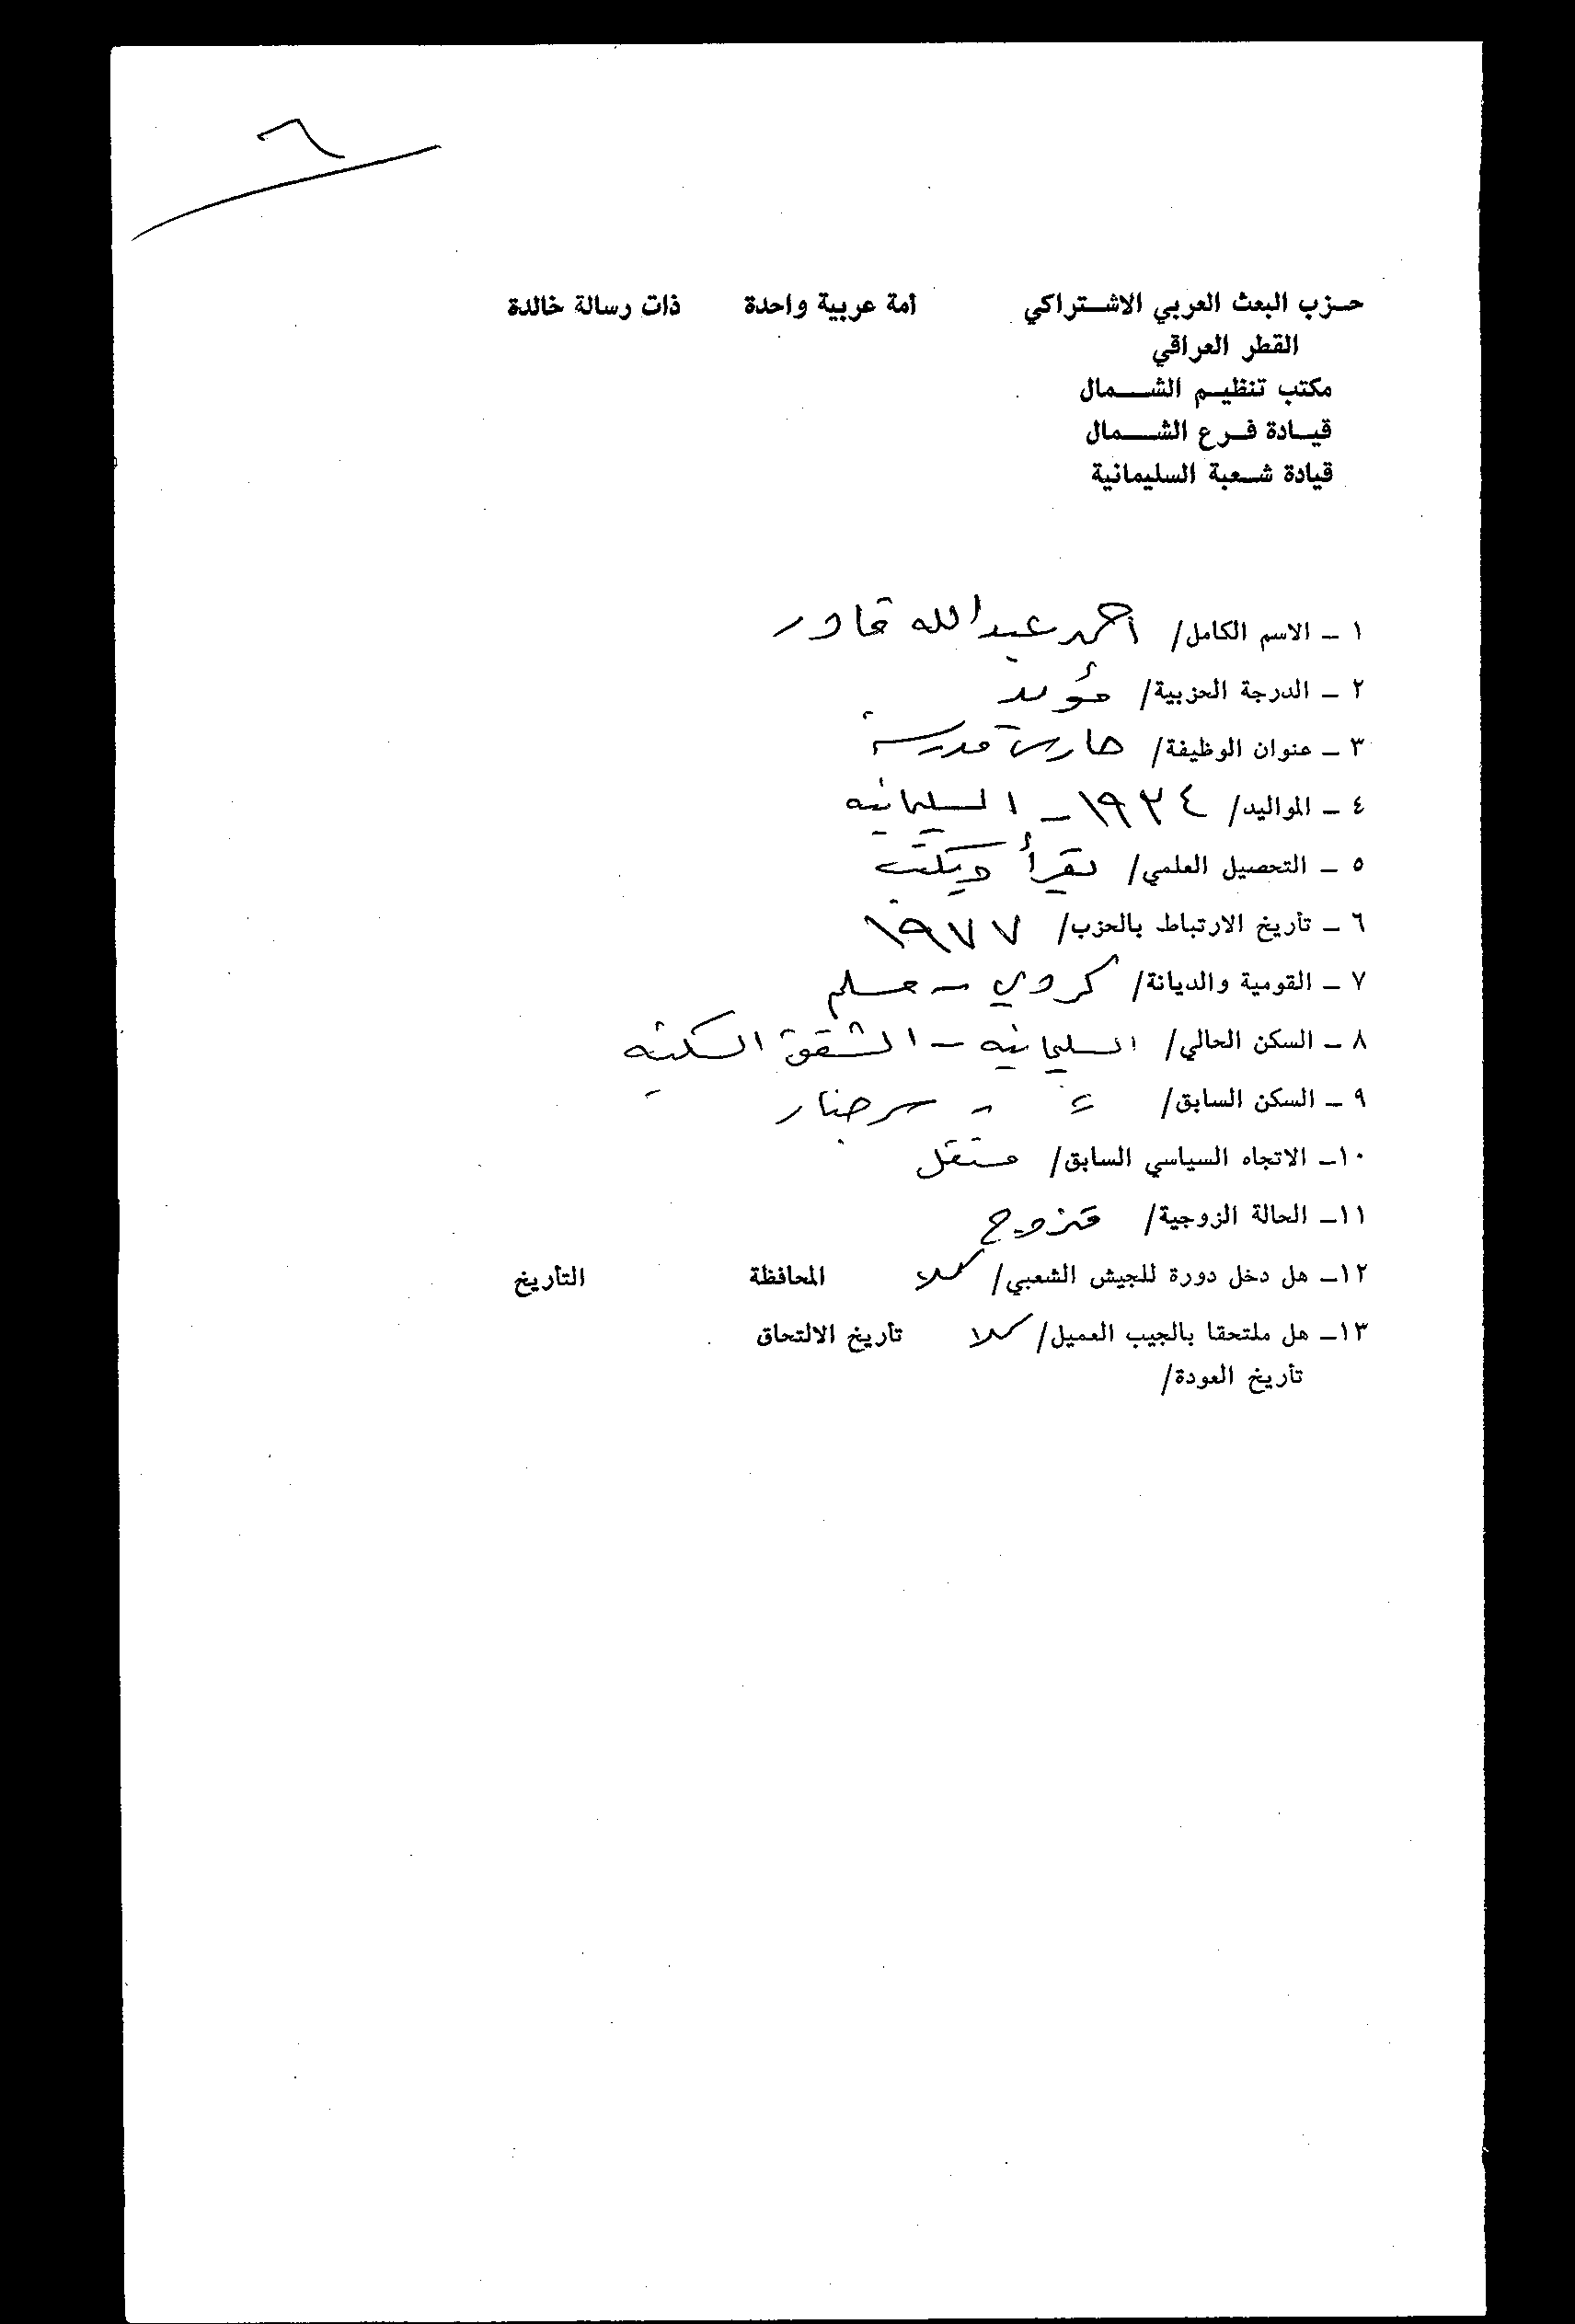 ٦
حزب البعث العربي الاشتراكي أمة عربية واحدة ذات رسالة خالدة
القطر العراقي
مكتب تنظيم الشمال
قيادة فرع الشمال
قيادة شعبة السليمانية
١ - الاسم الكامل/ احمد عبدالله قادر
٢ - الدرجة الحزبية/ مؤيد
٣ - عنوان الوظيفة/ حارس مدرسة
٤ - المواليد/ ١٩٣٤ - السليمانيه
٥ - التحصيل العلمي/ يقرأ ويكتب
٦ - تأريخ الارتباط بالحزب/ ١٩٧٧
٧ - القومية والديانة/ كردي - مسلم
٨ - السكن الحالي/ السليمانيه - الشقق السكنيه
٩ - السكن السابق/ = - سرجنار
١٠- الاتجاه السياسي السابق/ مستقل
١١- الحالة الزوجية/ متزوج
١٢- هل دخل دورة للجيش الشعبي/ كلا المحافظة التأريخ
١٣- هل ملتحقا بالجيب العميل/ كلا تأريخ الالتحاق
تأريخ العودة/